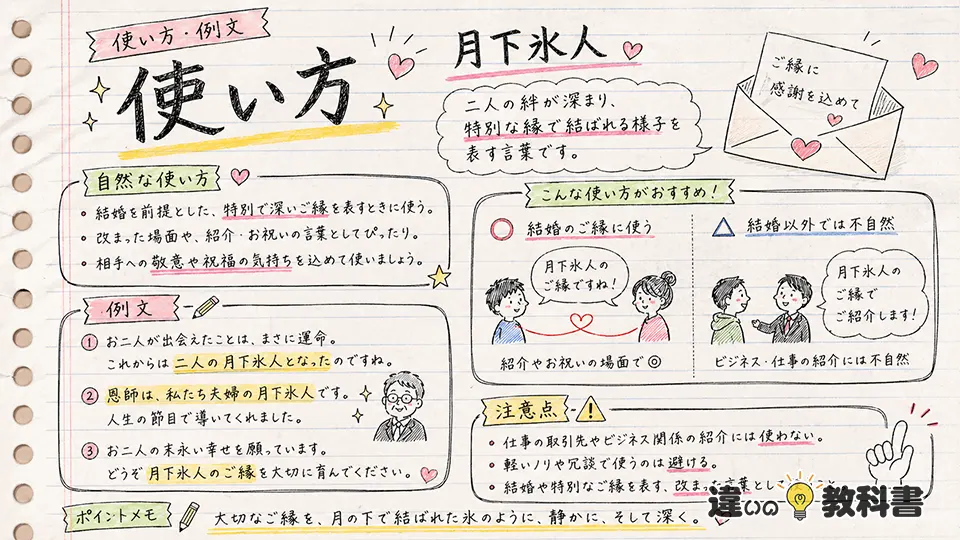 使い方・例文
使い方
月下氷人
二人の絆が深まり、
特別な縁で結ばれる様子を
表す言葉です。
ご縁に
感謝を込めて
自然な使い方
・結婚を前提とした、特別で深いご縁を表すときに使う。
・改まった場面や、紹介・お祝いの言葉としてぴったり。
・相手への敬意や祝福の気持ちを込めて使いましょう。
例文
① お二人が出会えたことは、まさに運命。
これからは二人の月下氷人となったのですね。
② 恩師は、私たち夫婦の月下氷人です。
人生の節目で導いてくれました。
③ お二人の末永い幸せを願っています。
どうぞ月下氷人のご縁を大切に育んでください。
こんな使い方がおすすめ!
○ 結婚のご縁に使う
月下氷人の
ご縁ですね!
紹介やお祝いの場面で◎
△ 結婚以外では不自然
月下氷人の
ご縁で
ご紹介します!
ビジネス・仕事の紹介には不自然
注意点
・仕事の取引先やビジネス関係の紹介には使わない。
・軽いノリや冗談で使うのは避ける。
・結婚や特別なご縁を表す、改まった言葉とし
違いの教科書
ポイントメモ
大切なご縁を、月の下で結ばれた氷のように、静かに、そして深く。